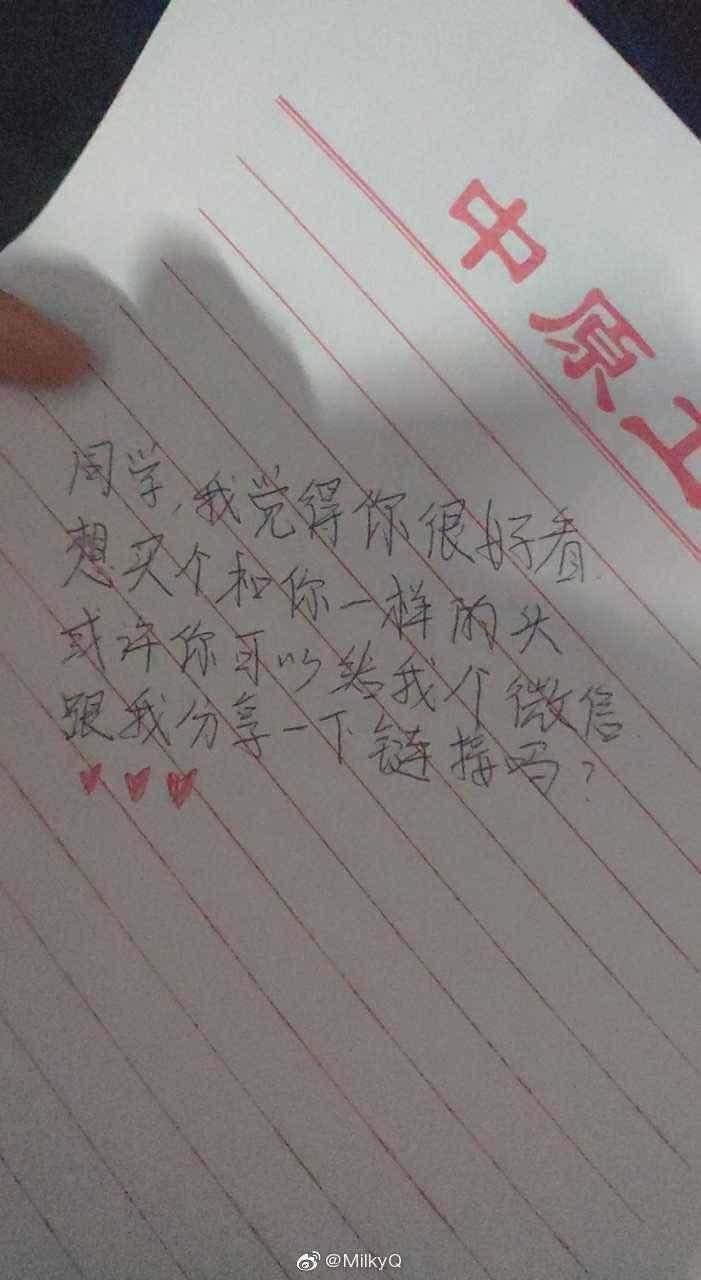 中原工
同学,我觉得你很好看
想买个和你一样的头
或许你可以给我个微信
跟我分享一下链接吗?
@MilkyQ